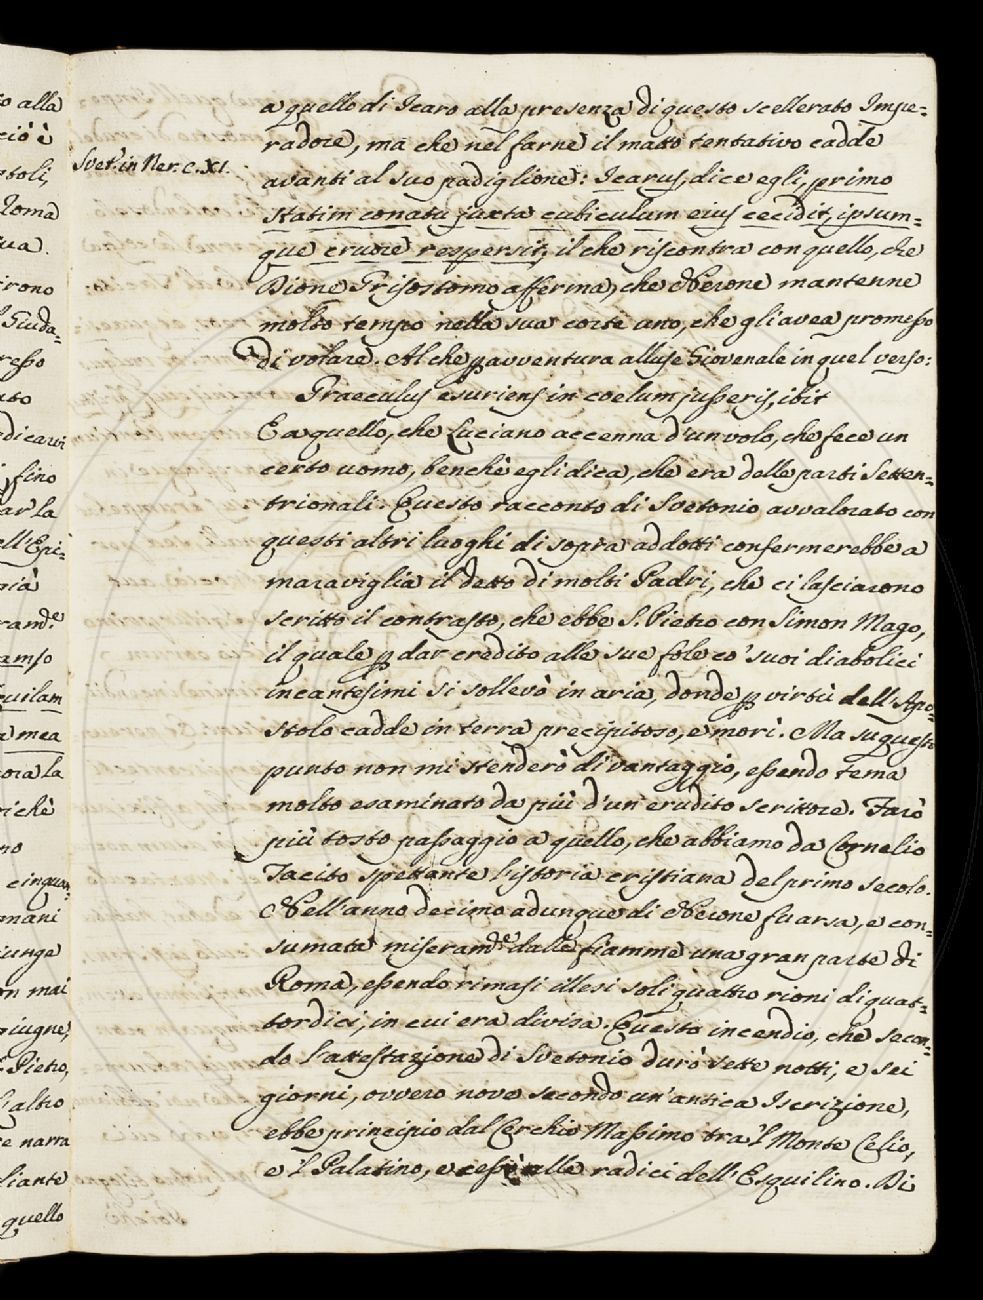 to alla
ciò è
ptoli,
Roma
ua.
irono
l Giuda=
resso
ato
dicarvi
, fino
ar la
ell'Epi=
già
ramᵈᵉ
amso
quilam
a mea
oia la
richè
no
cinqua=
mani
iunge
on mai
giugne,
. Pietro,
l'altro
e narra
liante
quello
Svet. in Ner. c. XI.
a quello di Icaro alla presenza di questo scellerato Impe=
radore, ma che nel farne il matto tentativo cadde
avanti al suo padiglione: Icarus, dice egli, primo
statim conatu juxta cubiculum ejus cecidit, ipsum=
que cruore respersit, il che riscontra con quello, che
Dione Grisostomo afferma, che Nerone mantenne
molto tempo nella sua corte uno, che gli avea promesso
di volare. Al che p avventura alluse Giovenale in quel verso:
Graeculus esuriens in coelum jusseris, ibit
E a quello, che Luciano accenna d'un volo, che fece un
certo uomo, benchè egli dica, che era delle parti Setten=
trionali. Questo racconto di Svetonio avvalorato con
questi altri luoghi di sopra addotti confermerebbe a
maraviglia il detto di molti Padri, che ci lasciarono
scritto il contrasto, che ebbe S. Pietro con Simon Mago,
il quale p dar credito alle sue fole co' suoi diabolici
incantesimi si sollevò in aria, donde p virtù dell'Apo=
stolo cadde in terra precipitoso, e morì. Ma su questo
punto non mi stenderò di vantaggio, essendo tema
molto esaminato da più d'un'erudito scrittore. Farò
più tosto passaggio a quello, che abbiamo da Cornelio
Tacito spettante l'istoria cristiana del primo secolo.
Nell'anno decimo adunque di Nerone fu arsa, e con=
sumata miseramᵈᵉ dalle fiamme una gran parte di
Roma, essendo rimasi illesi soli quattro rioni di quat=
tordici, in cui era divisa. Questo incendio, che secon=
do l'attestazione di Svetonio durò sette notti, e sei
giorni, ovvero nove secondo un'antica Iscrizione,
ebbe principio dal Cerchio Massimo tra 'l Monte Celio,
e 'l Palatino, e cessò alle radici dell'Esquilino. Di